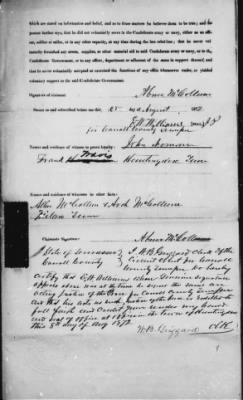 which are stated on information and belief, and as to those matters he believes them to be true; and de-
ponent further says, that he did not voluntarily serve in the Confederate army or navy, either as an offi-
cer, soldier or sailor, or in any other capacity, at any time during the late rebellion; that he never vol-
untarily furnished any stores, supplies, or other material aid to said Confederate army or navy, or to the
Confederate Government, or to any officer, department or adherent of the same in support thereof; and
that he never voluntarily accepted or exercised the functions of any office whatsoever under, or yielded
voluntary support to the said Confederate Government.
Signature of claimant: Abner McCollum
Sworn to and subscribed before me this day August
for Carroll County Tennessee
John
Frank Travis Huntingdon Tenn
Names and residence of witnesses to other facts:
McCollum & McCollum
Tenn
Claimants Signature: Abner McCollum
State of Tennessee
Carroll County
W.B. Grizzard Clerk of the
Circuit Court for Carroll
County Tennessee do hereby
certify that whose genuine signature
appears above was at the time he signed the same an
acting Justice of the Peace for Carroll County Tennessee
and that his acts as such Justice of the Peace is entitled to
full faith and credit Given under my hand
and seal of office at office in the town of Huntingdon
this 8th day of Aug
W.B. Grizzard Clk